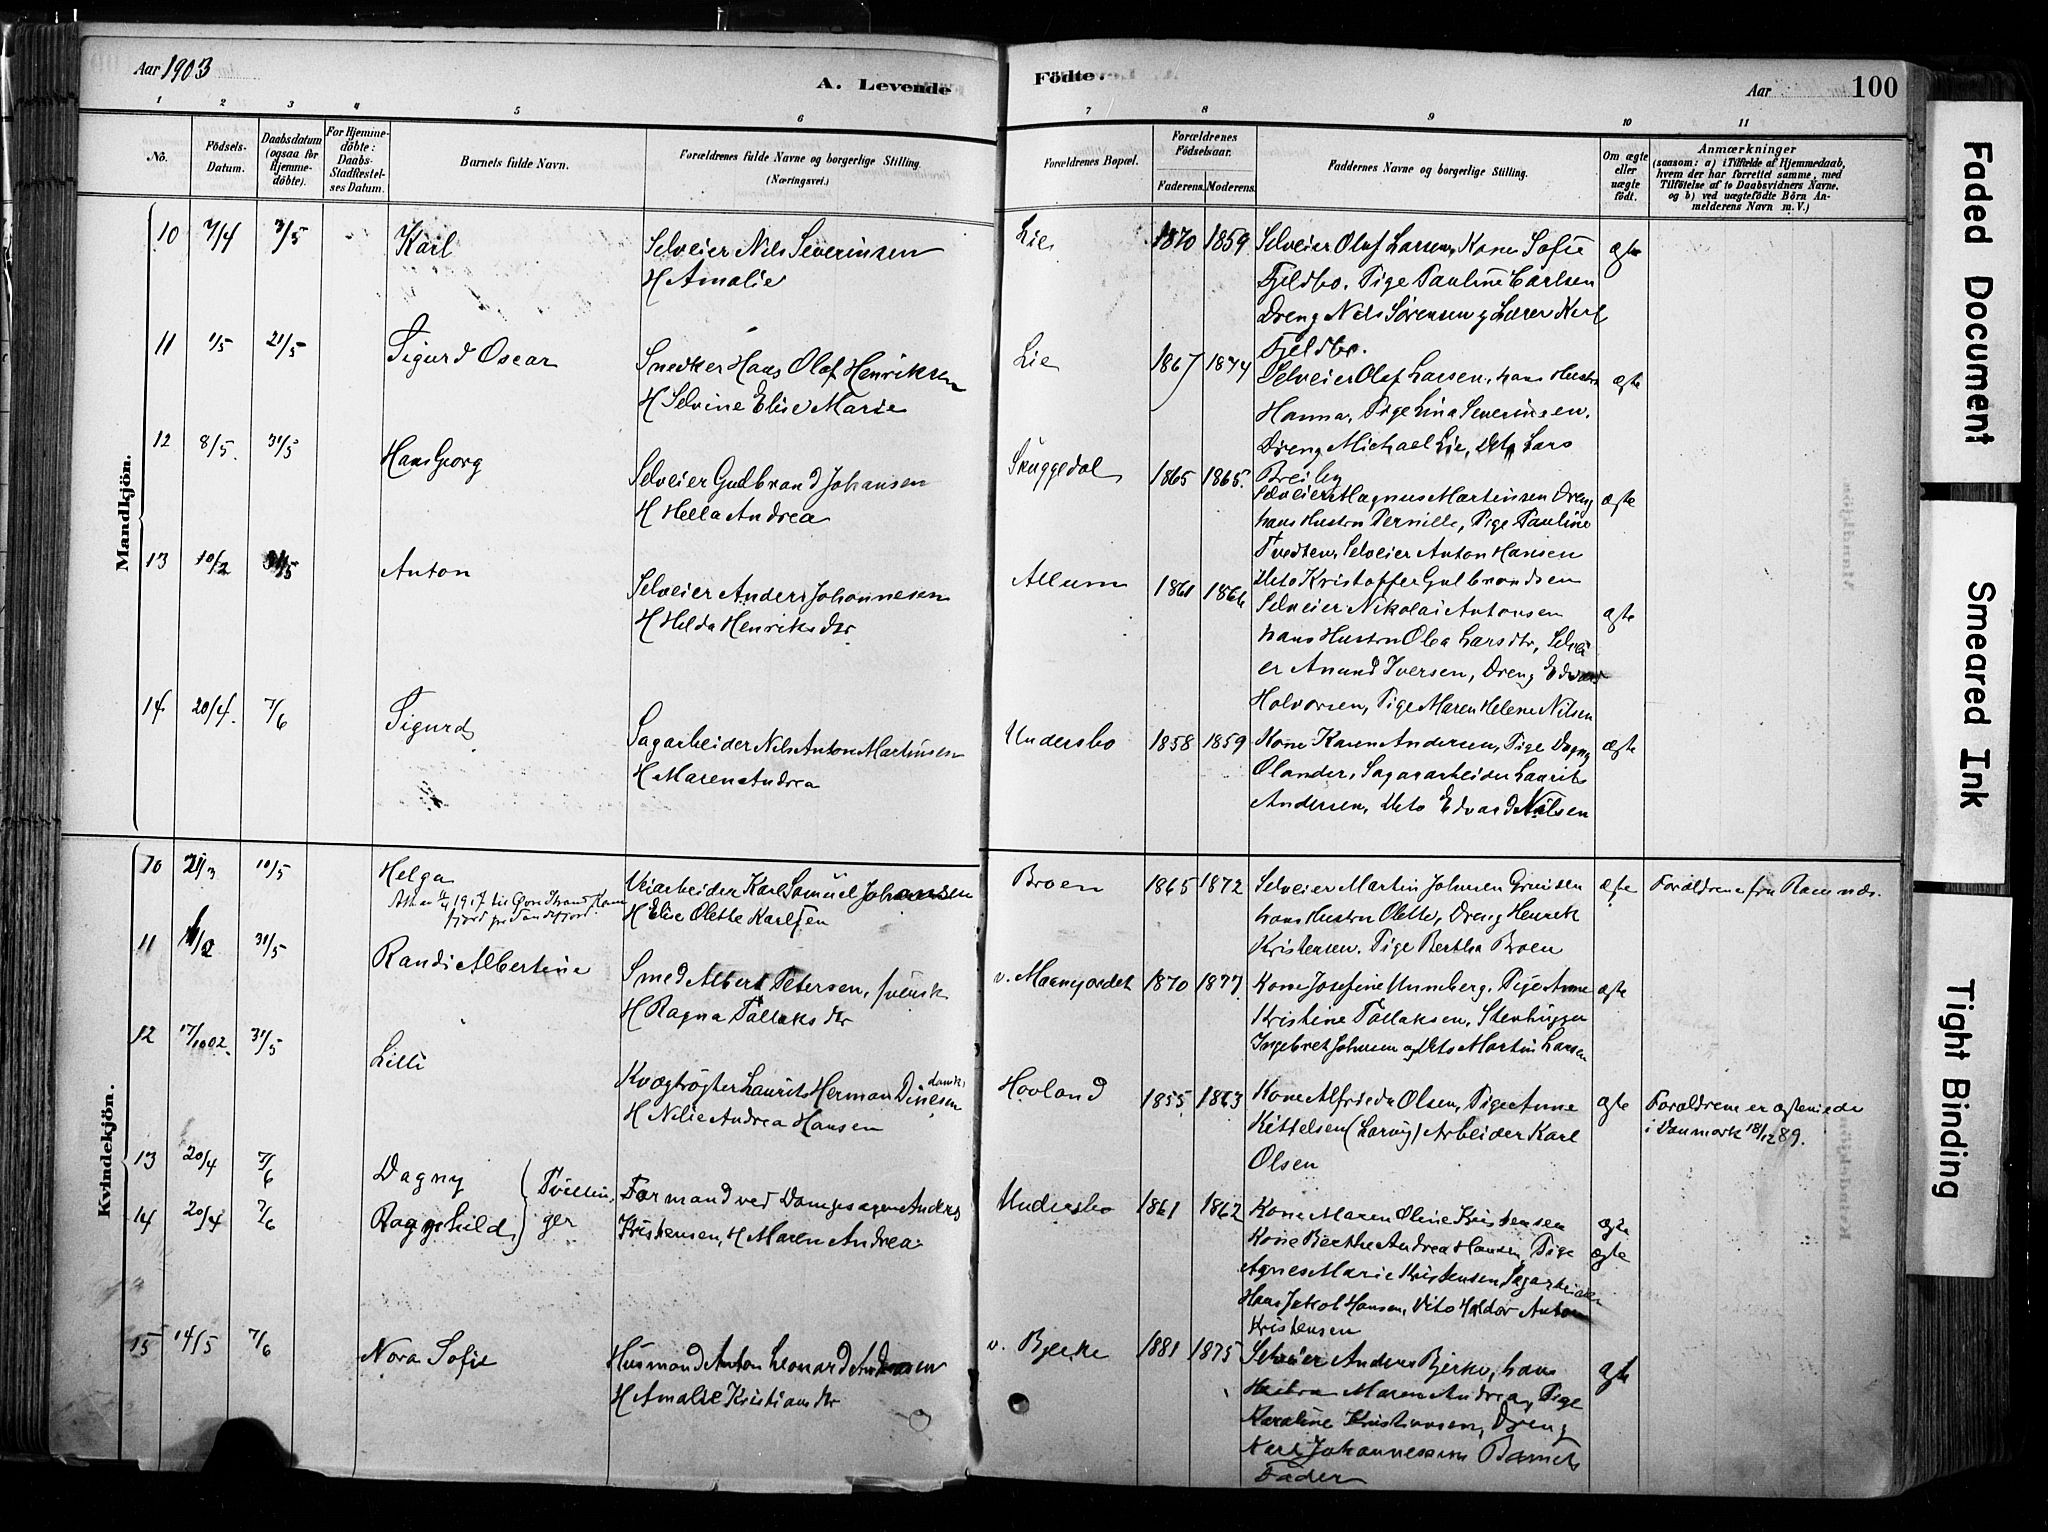 Aar 1903
A. Levende
Födte.
Aar
100
1 2 3 4 5 6 7 8 9 10 11
No.
Födsels-Datum.
Daabsdatum (ogsaa for Hjemme-döbte).
For Hjemme-döbte: Daabs-Stadfæstel-ses Datum.
Barnets fulde Navn.
Forældrenes fulde Navne og borgerlige Stilling.
(Næringsvei.)
Forældrenes Bopæl.
Forældrenes Födselsaar.
Faderens. Moderens.
Faddernes Navne og borgerlige Stilling.
Om ægte eller uægte födt.
Anmærkninger
(saasom: a) i Tilfælde af Hjemmedaab,
hvem der har forrettet samme, med
Tilföielse af to Daabsvidners Navne.
og b) ved uægtefödte Börn An-
melderens Navn m. V.)
Mandkjön.
10 7/4 3/5 Karl
Selveier Nils Severinsen
H Amalie
Lie 1870 1859
Selveier Olaf Larsen, Kone Sofie
Fjeldbo. Pige Pauline Carlsen
Dreng Nils Sörensen og Lærer Karl
Fjeldbo.
ægte
11 1/5 21/5 Sigurd Oscar
Snedker Hans Olaf Henriksen
H Selvine Elise Marie
Lie 1867 1874
Selveier Olaf Larsen, hans Hustru
Hanna, Pige Lina Severinsen.
Dreng Michael Lie, Dito Lars
Breiby
ægte
12 8/5. 31/5 Hans Georg
Selveier Gulbrand Johansen
H Hella Andrea
Skuggedal 1865 1865.
Selveier Magnus Martinsen Dreng
hans Hustru Pernille, Pige Pauline
Tvedten, Selveier Anton Hansen
Dito Kristoffer Gulbrandsen
ægte
13 10/2 31/5 Anton
Selveier Anders Johannesen
H Hilda Henriksdtr
Allum 1861 1866
Selveier Nikolai Antonsen
hans Hustru Olea Larsdtr, Selvei
er Anund Iversen, Dreng Edvard
Halvorsen, Pige Maren Helene Nilsen
ægte
14 20/4. 7/6 Sigurd
Sagarbeider Nils Anton Martinsen
H Maren Andrea
Undersbo 1858 1859
Kone Karen Andersen, Pige Dagny
Olander, Sagarbeider Laurits
Andersen, Dito Edvard Nilsen
ægte
Kvindekjön.
10 21/3 10/5 Helga
1917 til
fjord pr Sandefjord.
Veiarbeider Karl Samuel Johansen
H Elise Olette Karlsen
Broen 1865 1872
Selveier Martin Johnsen
hans Hustru Olette, Dreng Henrik
Kristensen. Pige Bertha Broen
ægte
Forældrene fra Ramnæs.
11 31/5 Randi Albertine
Smed Albert Petersen, svensk
H Ragna Tollaksdtr
v. Maanejordet 1870 1877.
Kone Josefine Unneberg. Pige Anne
Kristine Tollaksen, Stenhugger
Ingebret Johnsen og Dito Martin Larsen
ægte
12 17/1002. 31/5 Lilli
Kvægrögter Laurits Herman Dinesen dansk
H Nilie Andrea Hansen
Hovland 1855 1863
Kone Alfrieda Olsen, Pige Anne
Kittelsen (Larvig) Arbeider Karl
Olsen
ægte
Forældrene er ægteviede
i Danmark 18/12 89.
13 20/4 7/6 Dagny
14 20/4 7/6 Ragnhild
Tvillin
ger
Formand ved Dampsagen Anders
Kristensen, H Maren Andrea
Undersbo 1861 1862
Kone Maren Oline Kristensen
Kone Berthe Andrea Hansen, Pige
Agnes Marie Kristensen, Sagarbeider
Hans Jakob Hansen, Dito Haldor Anton
Kristensen
ægte
ægte
15 14/5 7/6 Nora Sofie
Husmand Anton Leonard Andersen
H Amalie Kristiansdtr
v. Bjerke 1881 1875
Selveier Anders Bjerke, hans
Hustru Maren Andrea, Pige
Karoline Kristiansen, Dreng
Karl Johannessen Barnets
Fader
ægte
Faded Document
Smeared Ink
Tight Binding